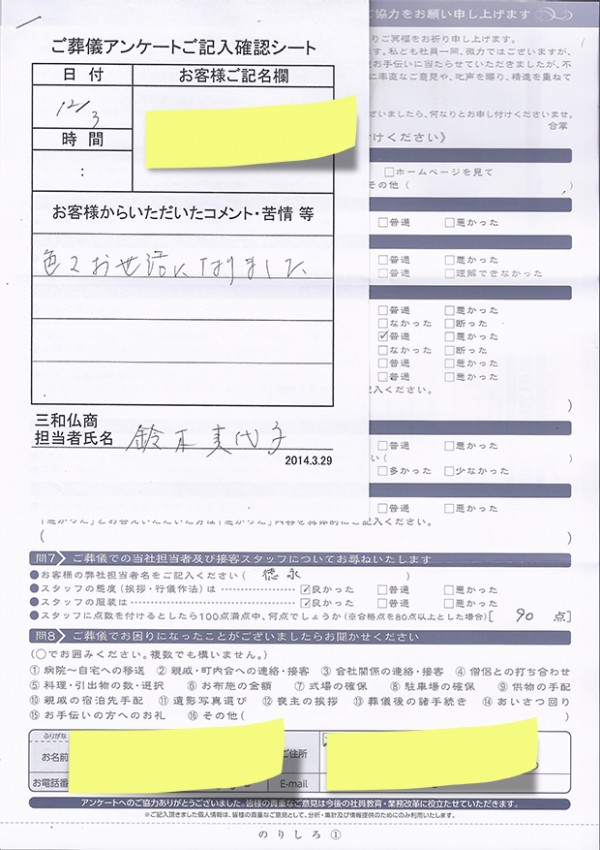 ご葬儀アンケートご記入確認シート
日付
お客様ご記名欄
12/3
時間
:
お客様からいただいたコメント・苦情 等
色々お世話になりました
三和仏商
担当者氏名 鈴木美代子
2014.3.29
ご協力をお願い申し上げます
りご冥福をお祈り申し上げます。
す。私ども社員一同、微力ではございますが、
お手伝いに当たらせていただきましたが、不
に率直なご意見や、叱声を賜り、精進を重ねて
ざいましたら、何なりとお申し付けくださいませ。
合掌
付けください》
□ホームページを見て
その他(
□普通 □悪かった
□普通 □悪かった
□普通 □理解できなかった
□普通 □悪かった
□なかった □断った
☑普通 □悪かった
□なかった □断った
□普通 □悪かった
□普通 □悪かった
記入ください。
)
□普通 □悪かった
い(
□多かった □少なかった
□普通 □悪かった
( )
問7 ご葬儀での当社担当者及び接客スタッフについてお尋ねいたします
●お客様の弊社担当者名をご記入ください( 徳永 )
●スタッフの態度(挨拶・行儀作法)は ☑良かった □普通 □悪かった
●スタッフの服装は ☑良かった □普通 □悪かった
●スタッフに点数を付けるとしたら100点満点中、何点でしょうか(※合格点を80点以上とした場合)[ 90 点]
問8 ご葬儀でお困りになったことがございましたらお聞かせください
(○でお囲みください。複数でも構いません。)
①病院〜自宅への移送 ②親戚・町内会への連絡・接客 ③会社関係の連絡・接客 ④僧侶との打ち合わせ
⑤料理・引出物の数・選択 ⑥お布施の金額 ⑦式場の確保 ⑧駐車場の確保 ⑨供物の手配
⑩親戚の宿泊先手配 ⑪遺影写真選び ⑫喪主の挨拶 ⑬葬儀後の諸手続き ⑭あいさつ回り
⑮お手伝いの方へのお礼 ⑯その他( )
ふりがな
お名前
ご住所
お電話番
E-mail
アンケートへのご協力ありがとうございました。皆様の貴重なご意見は今後の社員教育・業務改革に役立たせていただきます。
※ご記入頂きました個人情報は、皆様の貴重なご意見として、分析・集計及び情報提供のためにのみ利用いたします。
のりしろ①